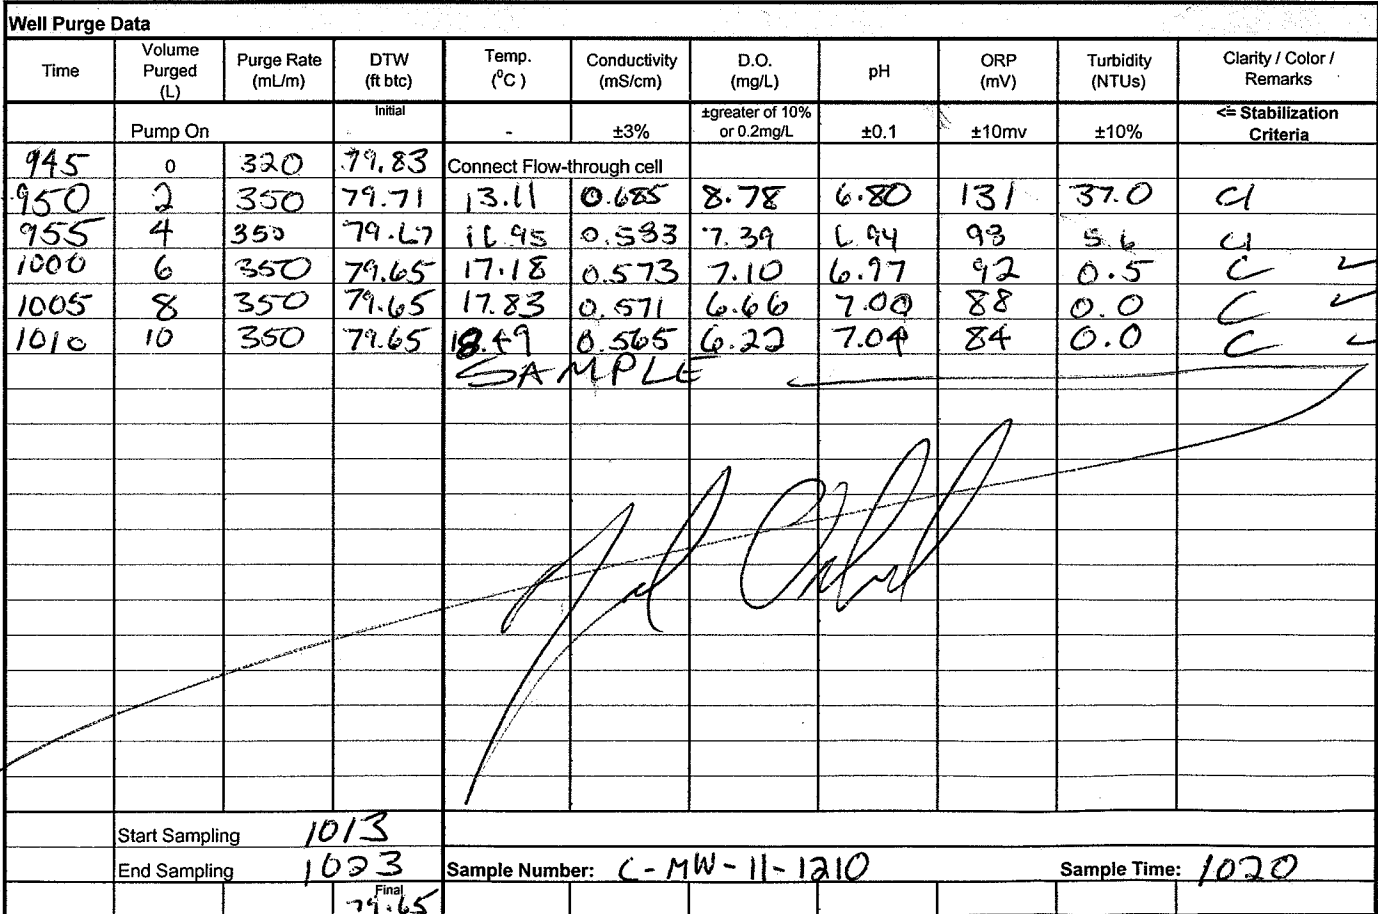 Well Purge Data
Time Volume Purged (L) Purge Rate (mL/m) DTW (ft btc) Temp. (⁰C ) Conductivity (mS/cm) D.O. (mg/L) pH ORP (mV) Turbidity (NTUs) Clarity / Color / Remarks
Pump On Initial - ±3% ±greater of 10% or 0.2mg/L ±0.1 ±10mv ±10% <= Stabilization Criteria
945 0 320 79.83 Connect Flow-through cell
950 2 350 79.71 13.11 0.685 8.78 6.80 131 37.0 Cl
955 4 350 79.67 16.95 0.583 7.39 6.94 98 5.6 Cl
1000 6 350 79.65 17.18 0.573 7.10 6.97 92 0.5 C ✓
1005 8 350 79.65 17.83 0.571 6.66 7.00 88 0.0 C ✓
1010 10 350 79.65 18.49 0.565 6.22 7.04 84 0.0 C ✓
SAMPLE
Start Sampling 1013
End Sampling 1023 Sample Number: C-MW-11-1210 Sample Time: 1020
Final
79.65